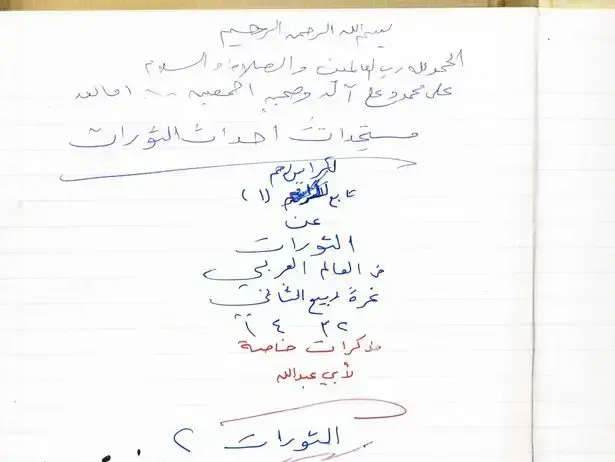 بسم الله الرحمن الرحيم
الحمد لله رب العالمين والصلاة والسلام
على محمد وعلى آله وصحبه أجمعين أما بعد
مستجدات أحداث الثورات
تابع (١)
عن
الثورات
في العالم العربي
غرة ربيع الثاني
٣٢ ٤ ١
مذكرات خاصة
لأبي عبدالله
الثورات ٢